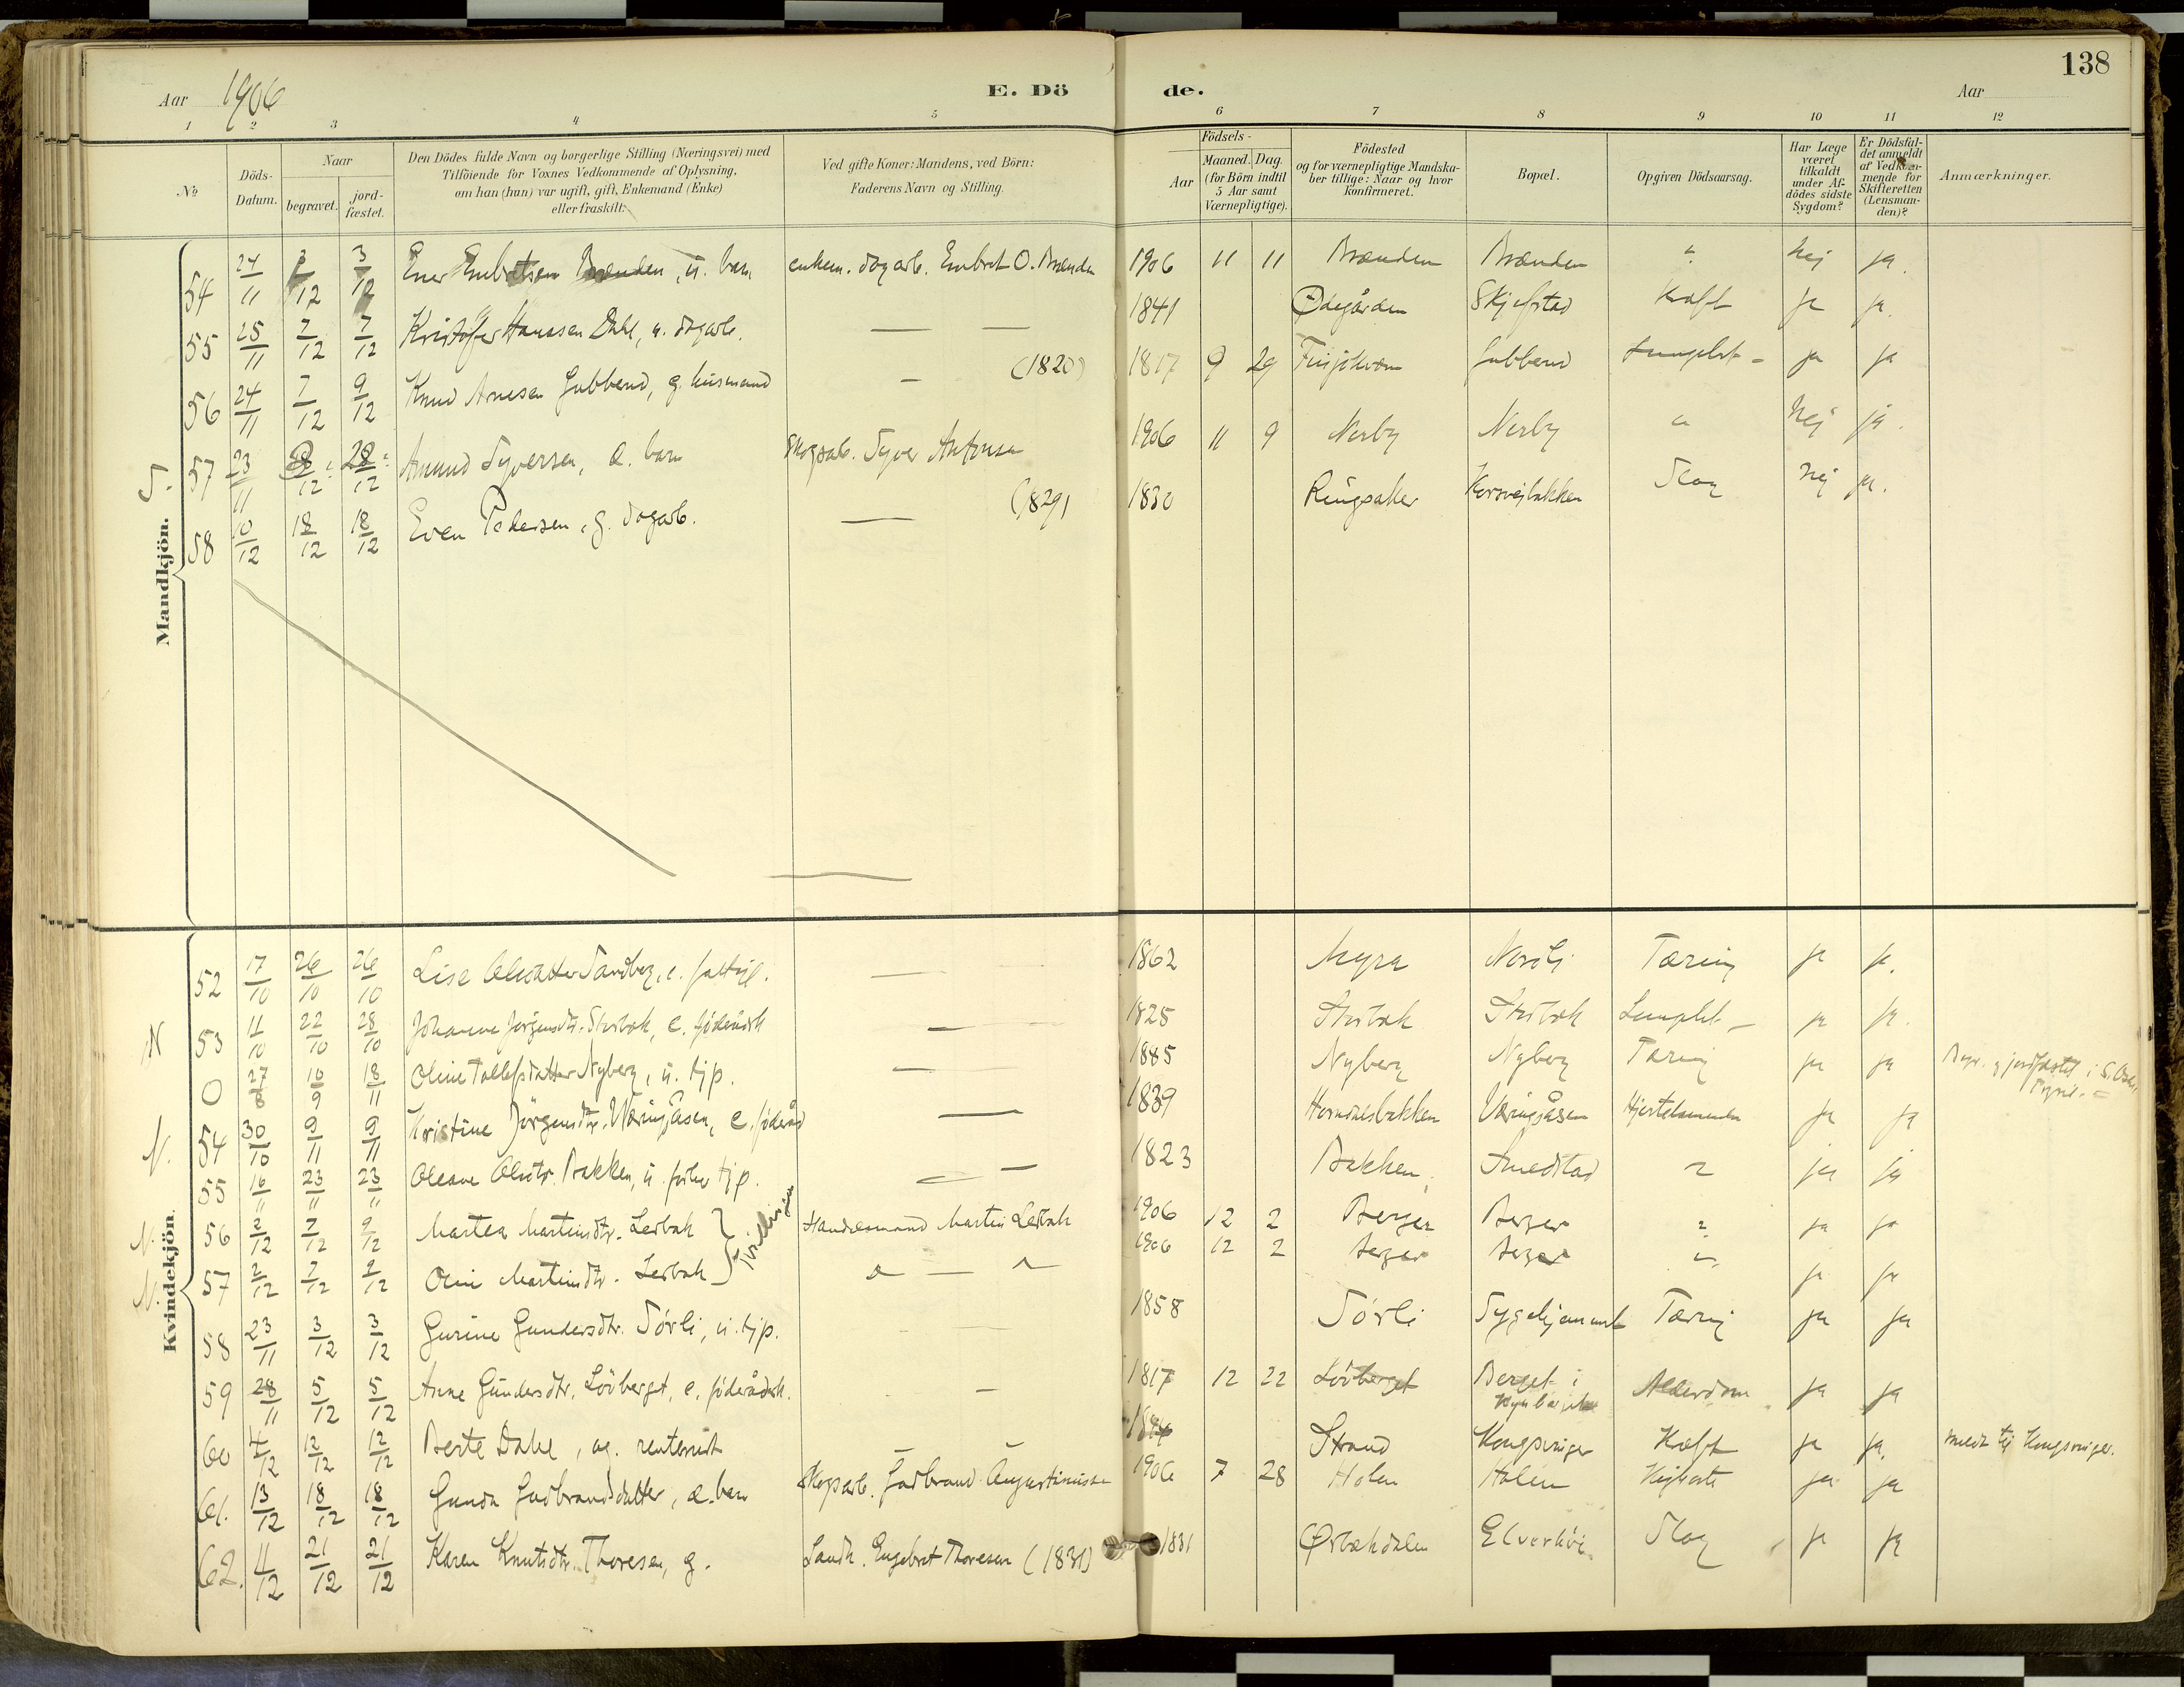 138
Aar 1906 E. Dö de. Aar
1 2 3 4 5 6 7 8 9 10 11 12
No
Döds-Datum.
Naar
begravet.
jord-fæstet.
Den Dödes fulde Navn og borgerlige Stilling (Næringsvei) med
Tilföiende for Voxnes Vedkommende af Oplysning,
om han (hun) var ugift, gift, Enkemand (Enke)
eller fraskilt.
Ved gifte Koner: Mandens, ved Börn:
Faderens Navn og Stilling.
Födsels-
Aar
Maaned. Dag.
(for Börn indtil
5 Aar samt
Værnepligtige).
Födested
og for værnepligtige Mandska-
ber tillige: Naar og hvor
konfirmeret.
Bopæl.
Opgiven Dödsaarsag.
Har Læge
været
tilkaldt
under Af-
dödes sidste
Sygdom?
Er Dödsfal-
det anmeldt
af Vedkom-
mende for
Skifteretten
(Lensman-
den)?
Anmærkninger.
Mandkjön.
54 24/11 3/12 3/12 Ener Embretsen Brænden, u. barn enkem. dagarb. Embret O. Brænden 1906 11 11 Brænden Brænden " Nej ja.
55 25/11 7/12 7/12 Kristoffer Hanssen Dahl, u. dagarb. — — 1841 Ødegården Skjefstad Kræft ja ja.
56 24/11 7/12 9/12 Knud Arnesen Gubberud, g. husmand — (1820) 1817 9 29 Gubberud ja ja
S. 57 23/11 28/12 Amund Syversen, æ. barn Skogsarb. Syver Antonsen 1906 11 9 Nerby Nerby " Nej ja.
58 10/12 18/12 18/12 Even Pedersen, g. dagarb. — (1829) 1830 Ringsaker Korsvejbakken Slag Nej ja.
Kvindekjön.
52 17/10 26/10 26/10 Lise Olesdatter Sandberg, e. — 1862 Myra Nordli Tæring ja ja.
N 53 11/10 22/10 28/10 Johanne Jørgensdtr. Storbæk, e. føderådsk — — 1825 Storbæk Storbæk Lungebet.— ja ja.
O 27/8 10/9 18/11 Oline Tollefsdatter Nyberg, u. tjp. — 1885 Nyberg Nyberg Tæring ja ja Begr. og jordfæstet i
N. 54 30/10 9/11 9/11 Kristine Jørgensdtr. Væringsåsen, e. føderåd — 1839 Hornnesbakken Væringsåsen Hjertelammelse ja ja
55 16/11 23/11 23/11 Oleane Olsdtr. Bakken, u. forhv. tjp. — — 1823 Bakken Smedstad " ja ja
N. 56 2/12 7/12 9/12 Martea Martinsdtr. Lerbæk } Tvillinger Handelsmand Martin Lerbæk 1906 12 2 Berger Berger " ja ja
N. 57 2/12 7/12 9/12 Olni Martinsdtr. Lerbæk " — " 1906 12 2 Berger Berger " ja ja
58 23/11 3/12 3/12 Gurine Gundersdtr. Sörli, u. tjp. — 1858 Sörli Sygehjemmet Tæring ja ja
59 28/11 5/12 5/12 Anne Gundersdtr. Lövberget, e. föderådsk. — 1817 12 22 Lövberget Berget i Alderdom ja ja
60 4/12 12/12 12/12 Berte Dahl, ug. rentenist — — Strand Kongsvinger Kræft ja ja. meldt til Kongsvinger.
61. 13/12 18/12 18/12 Gunda Gudbrandsdatter, æ. barn Skogsarb. Gudbrand Augustinussen 1906 7 28 Holen Holen Kighoste ja ja
62. 11/12 21/12 21/12 Karen Knutsdtr. Thoresen, g. Landh. Engebret Thoresen (1831) 1831 Ørbækdalen Elverhöi Slag ja ja